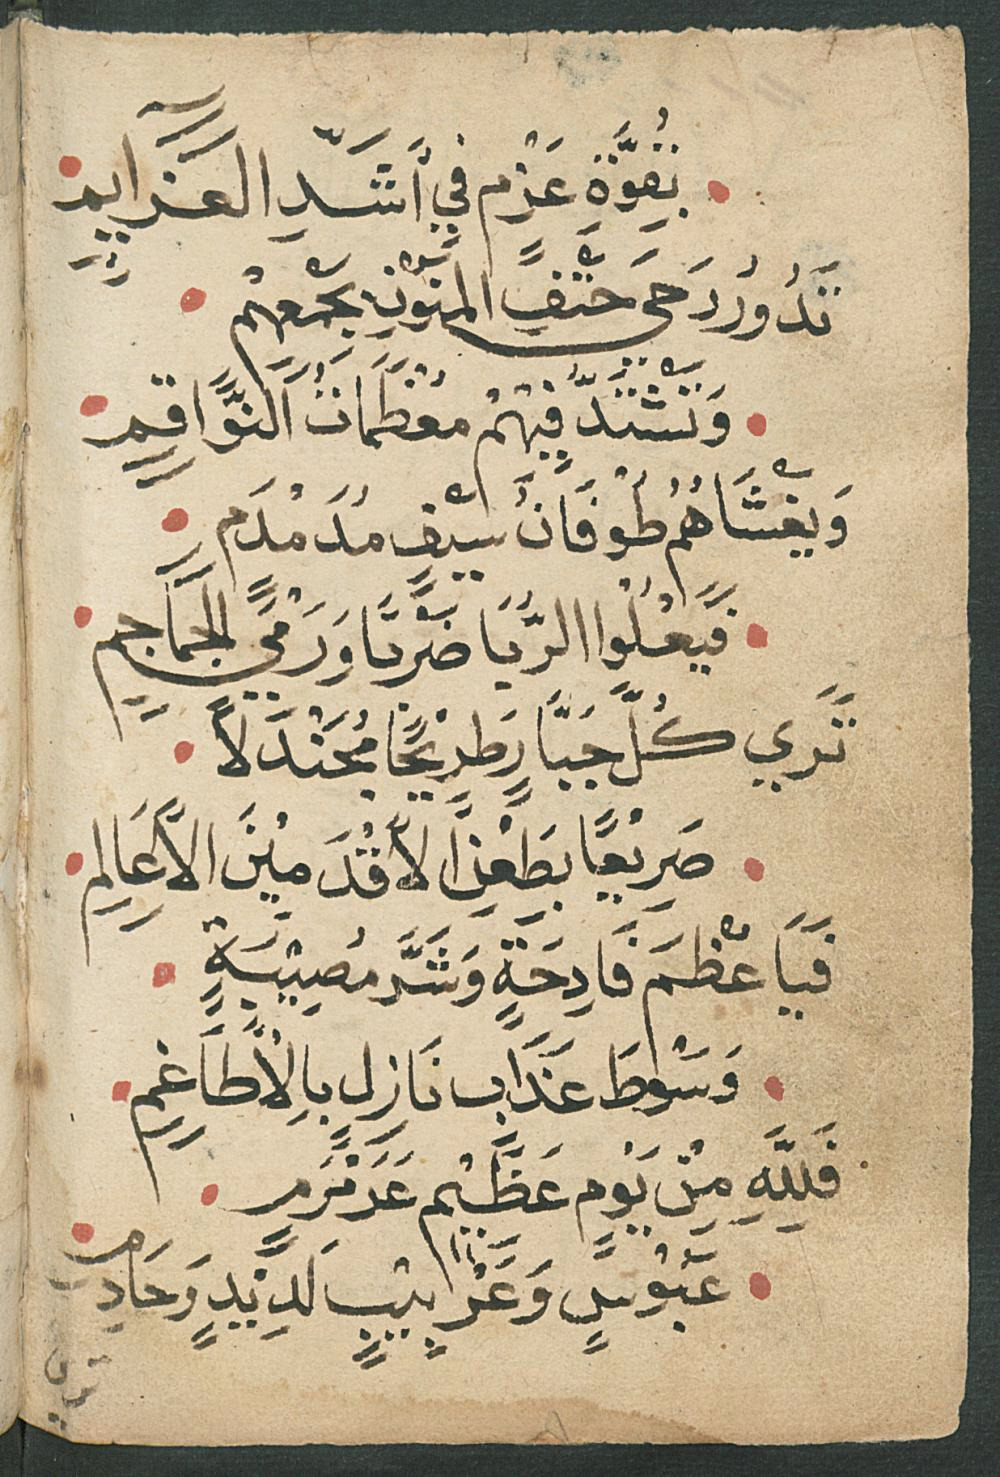 بِقُوَّةِ عَزْمٍ فِي أَشَدِّ الْعَزَايِمِ
تَدُورُ رَحَى حَتْفِ الْمَنُونِ بِجَمْعِهِمْ
وَتَشْتَدُّ فِيهِمْ مُعْظَمَاتُ النَّوَاقِمِ
وَيَغْشَاهُمُ طُوفَانُ سَيْفٍ مُدَمْدَمٍ
فَيَعْلُوا الرُّبَا ضَرْبًا وَرَمْيَ الْجَمَاجِمِ
تَرَي كُلَّ جَبَّارٍ طَرِيْحًا مُجَنْدَلاً
صَرِيْعًا بِطَعْنِ الْأَقْدَمِيْنَ الْأَعَالِمِ
فَيَا عُظْمَ فَادِحَةٍ وَشَرَّ مُصِيْبَةٍ
وَسَوْطَ عَذَابٍ نَازِلٍ بِالْأَطَاغِمِ
فَلِلَّهِ مِنْ يَوْمٍ عَظِيْمٍ عَرَمْرَمٍ
عَبُوْسٍ وَ لَدِيْدٍ وَحَادِمِ
تري